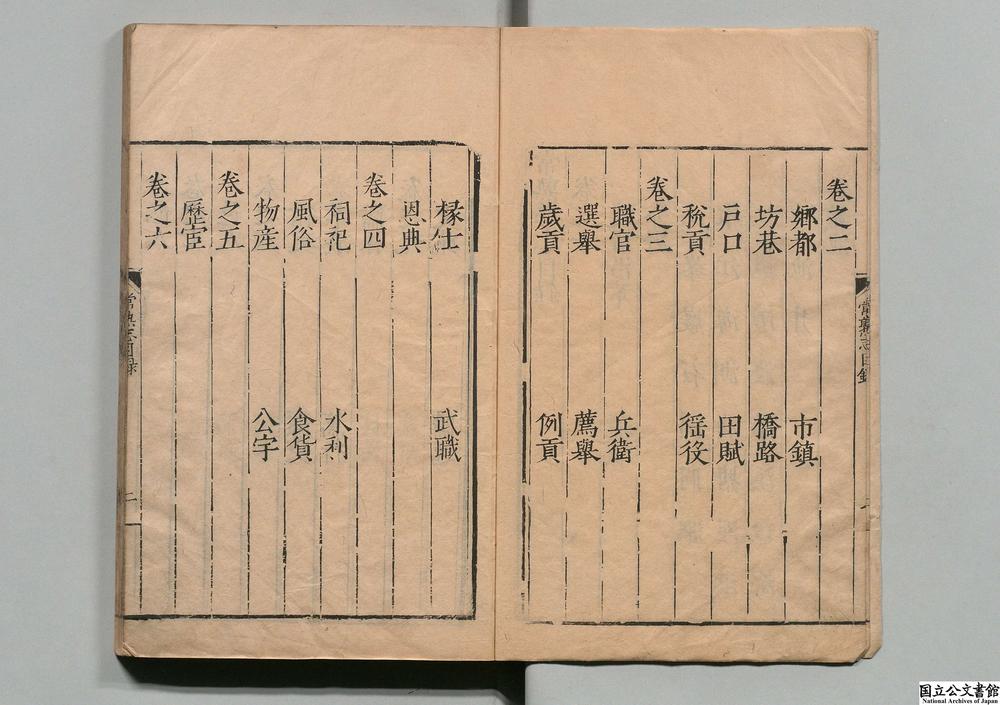 卷之二
鄉都 市鎮
坊巷 橋路
戸口 田賦
稅貢 徭役
卷之三
職官 兵衛
選舉 薦舉
歲貢 例貢
掾仕 武職
恩典
卷之四
祠祀 水利
風俗 食貨
物産 公字
卷之五
歷宦
卷之六
常熟志目錄
一
常熟志目錄
二
国立公文書館
National Archives of Japan